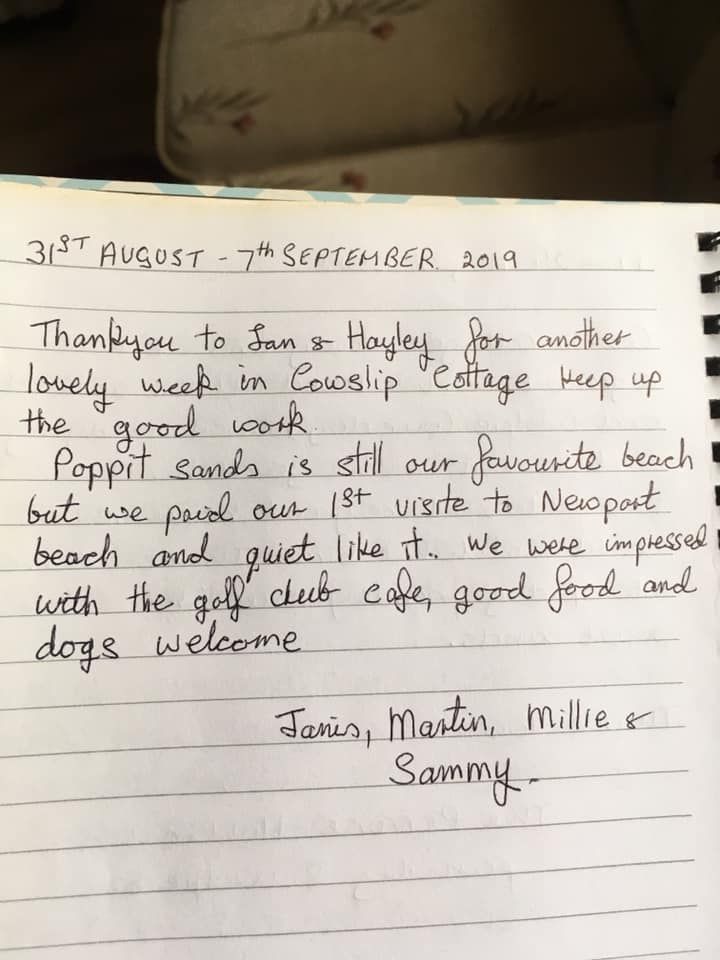 31ST AUGUST - 7th SEPTEMBER. 2019
Thankyou to Jan & Hayley for another
lovely week in Cowslip Cottage Keep up
the good work.
Poppit Sands is still our favourite beach
but we paid our 1st visite to Newport
beach and quiet like it.. We were impressed
with the golf club cafe, good food and
dogs welcome
Janis, Martin, Millie &
Sammy.